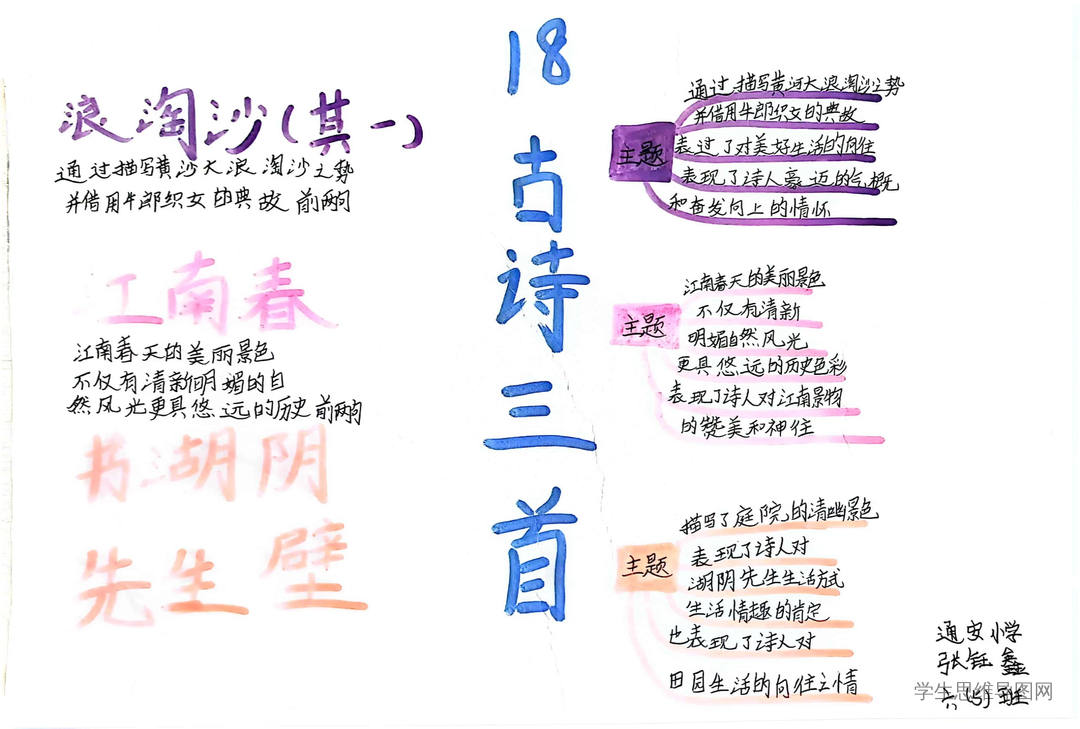 18
古
诗
三
首
浪淘沙(其一)
通过描写黄沙大浪淘沙之势
并借用牛郎织女的典故 前两句
江南春
江南春天的美丽景色
不仅有清新明媚的自
然风光更具悠远的历史 前两句
书湖阴
先生壁
主题
通过描写黄河大浪淘沙之势
并借用牛郎织女的典故
表过了对美好生活的向往
表现了诗人豪迈的气概
和奋发向上的情怀
主题
江南春天的美丽景色
不仅有清新
明媚自然风光
更具悠远的历史色彩
表现了诗人对江南景物
的赞美和神住
主题
描写了庭院的清幽景色
表现了诗人对
湖阴先生生活方式
生活情趣的肯定
也表现了诗人对
田园生活的向往之情
通安小学
张钰鑫
六(5)班
学生思维导图网